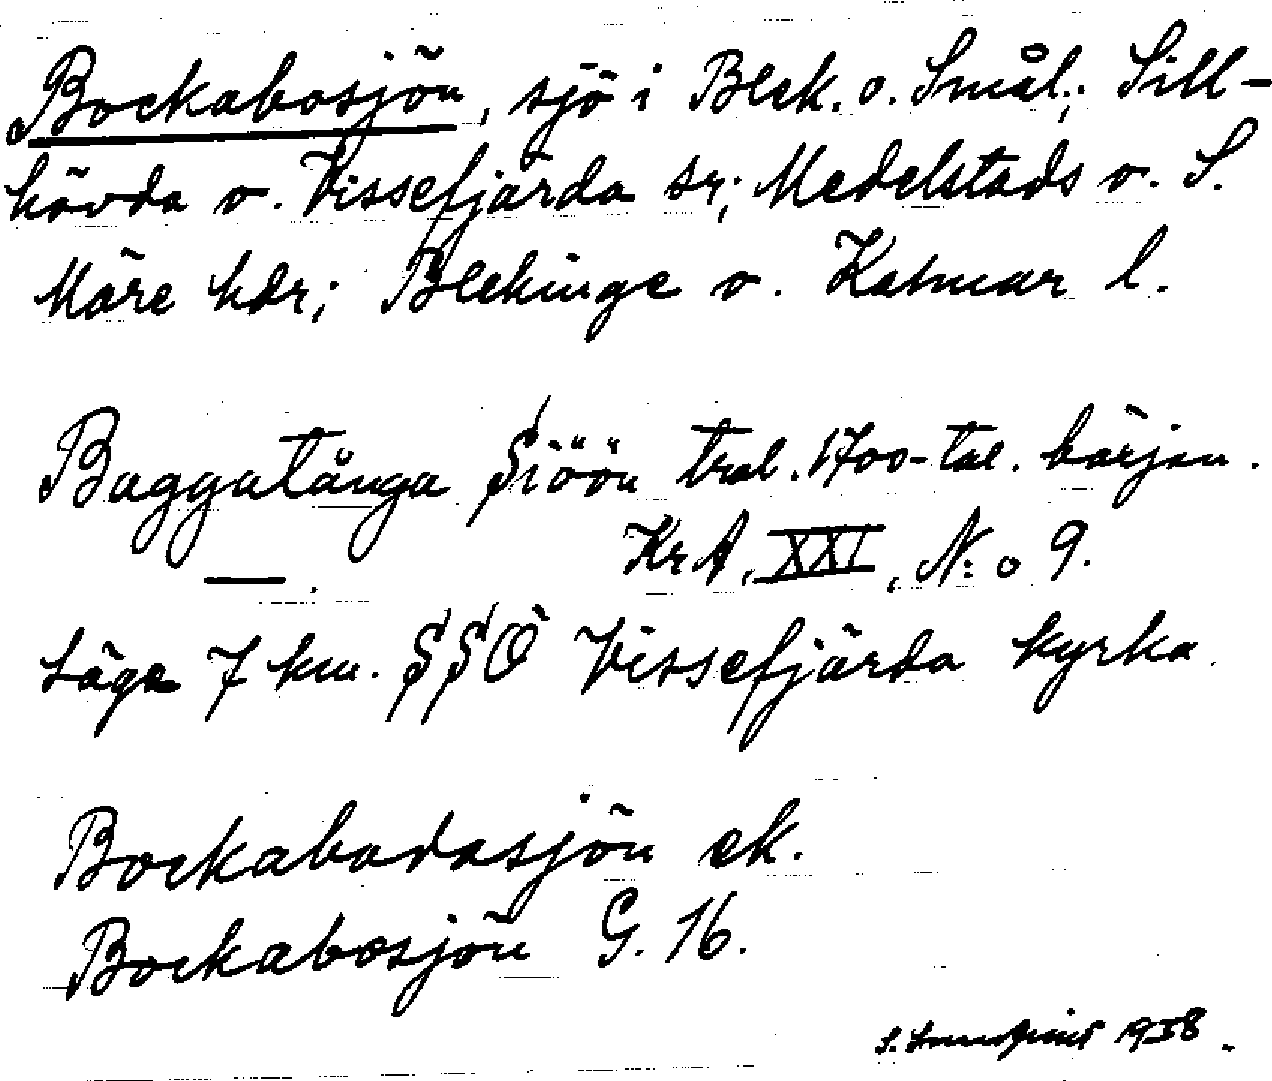 Bockabosjön, sjö i Blek. o. Smål.; Sill-
hövda o. Vissefjärda sr; Medelstads o. S.
Möre hdr; Blekinge o. Kalmar l.
Baggatånga Siöön trol. 1700-tal. början.
KrA, XXI, N:o 9.
Läge 7 km. SSÖ Vissefjärda kyrka.
Bockabodasjön ek.
Bockabosjön G. 16.
S. 1938.